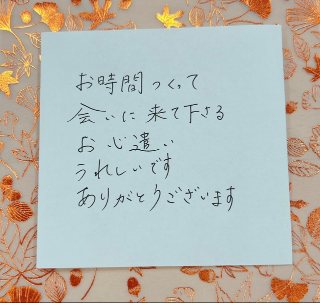 お時間つくって
会いに来て下さる
お心遣い
うれしいです
ありがとうございます